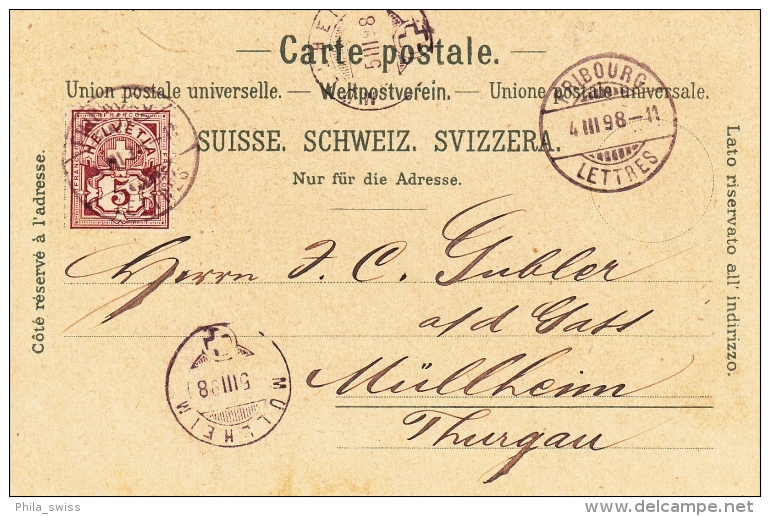 — Carte postale. —
Union postale universelle. — Weltpostverein. — Unione postale universale.
SUISSE. SCHWEIZ. SVIZZERA.
Nur für die Adresse.
Côté réservé à l'adresse.
Lato riservato all' indirizzo.
FRANCO
HELVETIA
5
FRIBOURG
4 III 98 — 11
LETTRES
5 III 98
Herrn J. C. Gubler
a/d Gass
Müllheim
Thurgau
5 III 98
MÜLLHEIM
Phila_swiss
delcampe.net